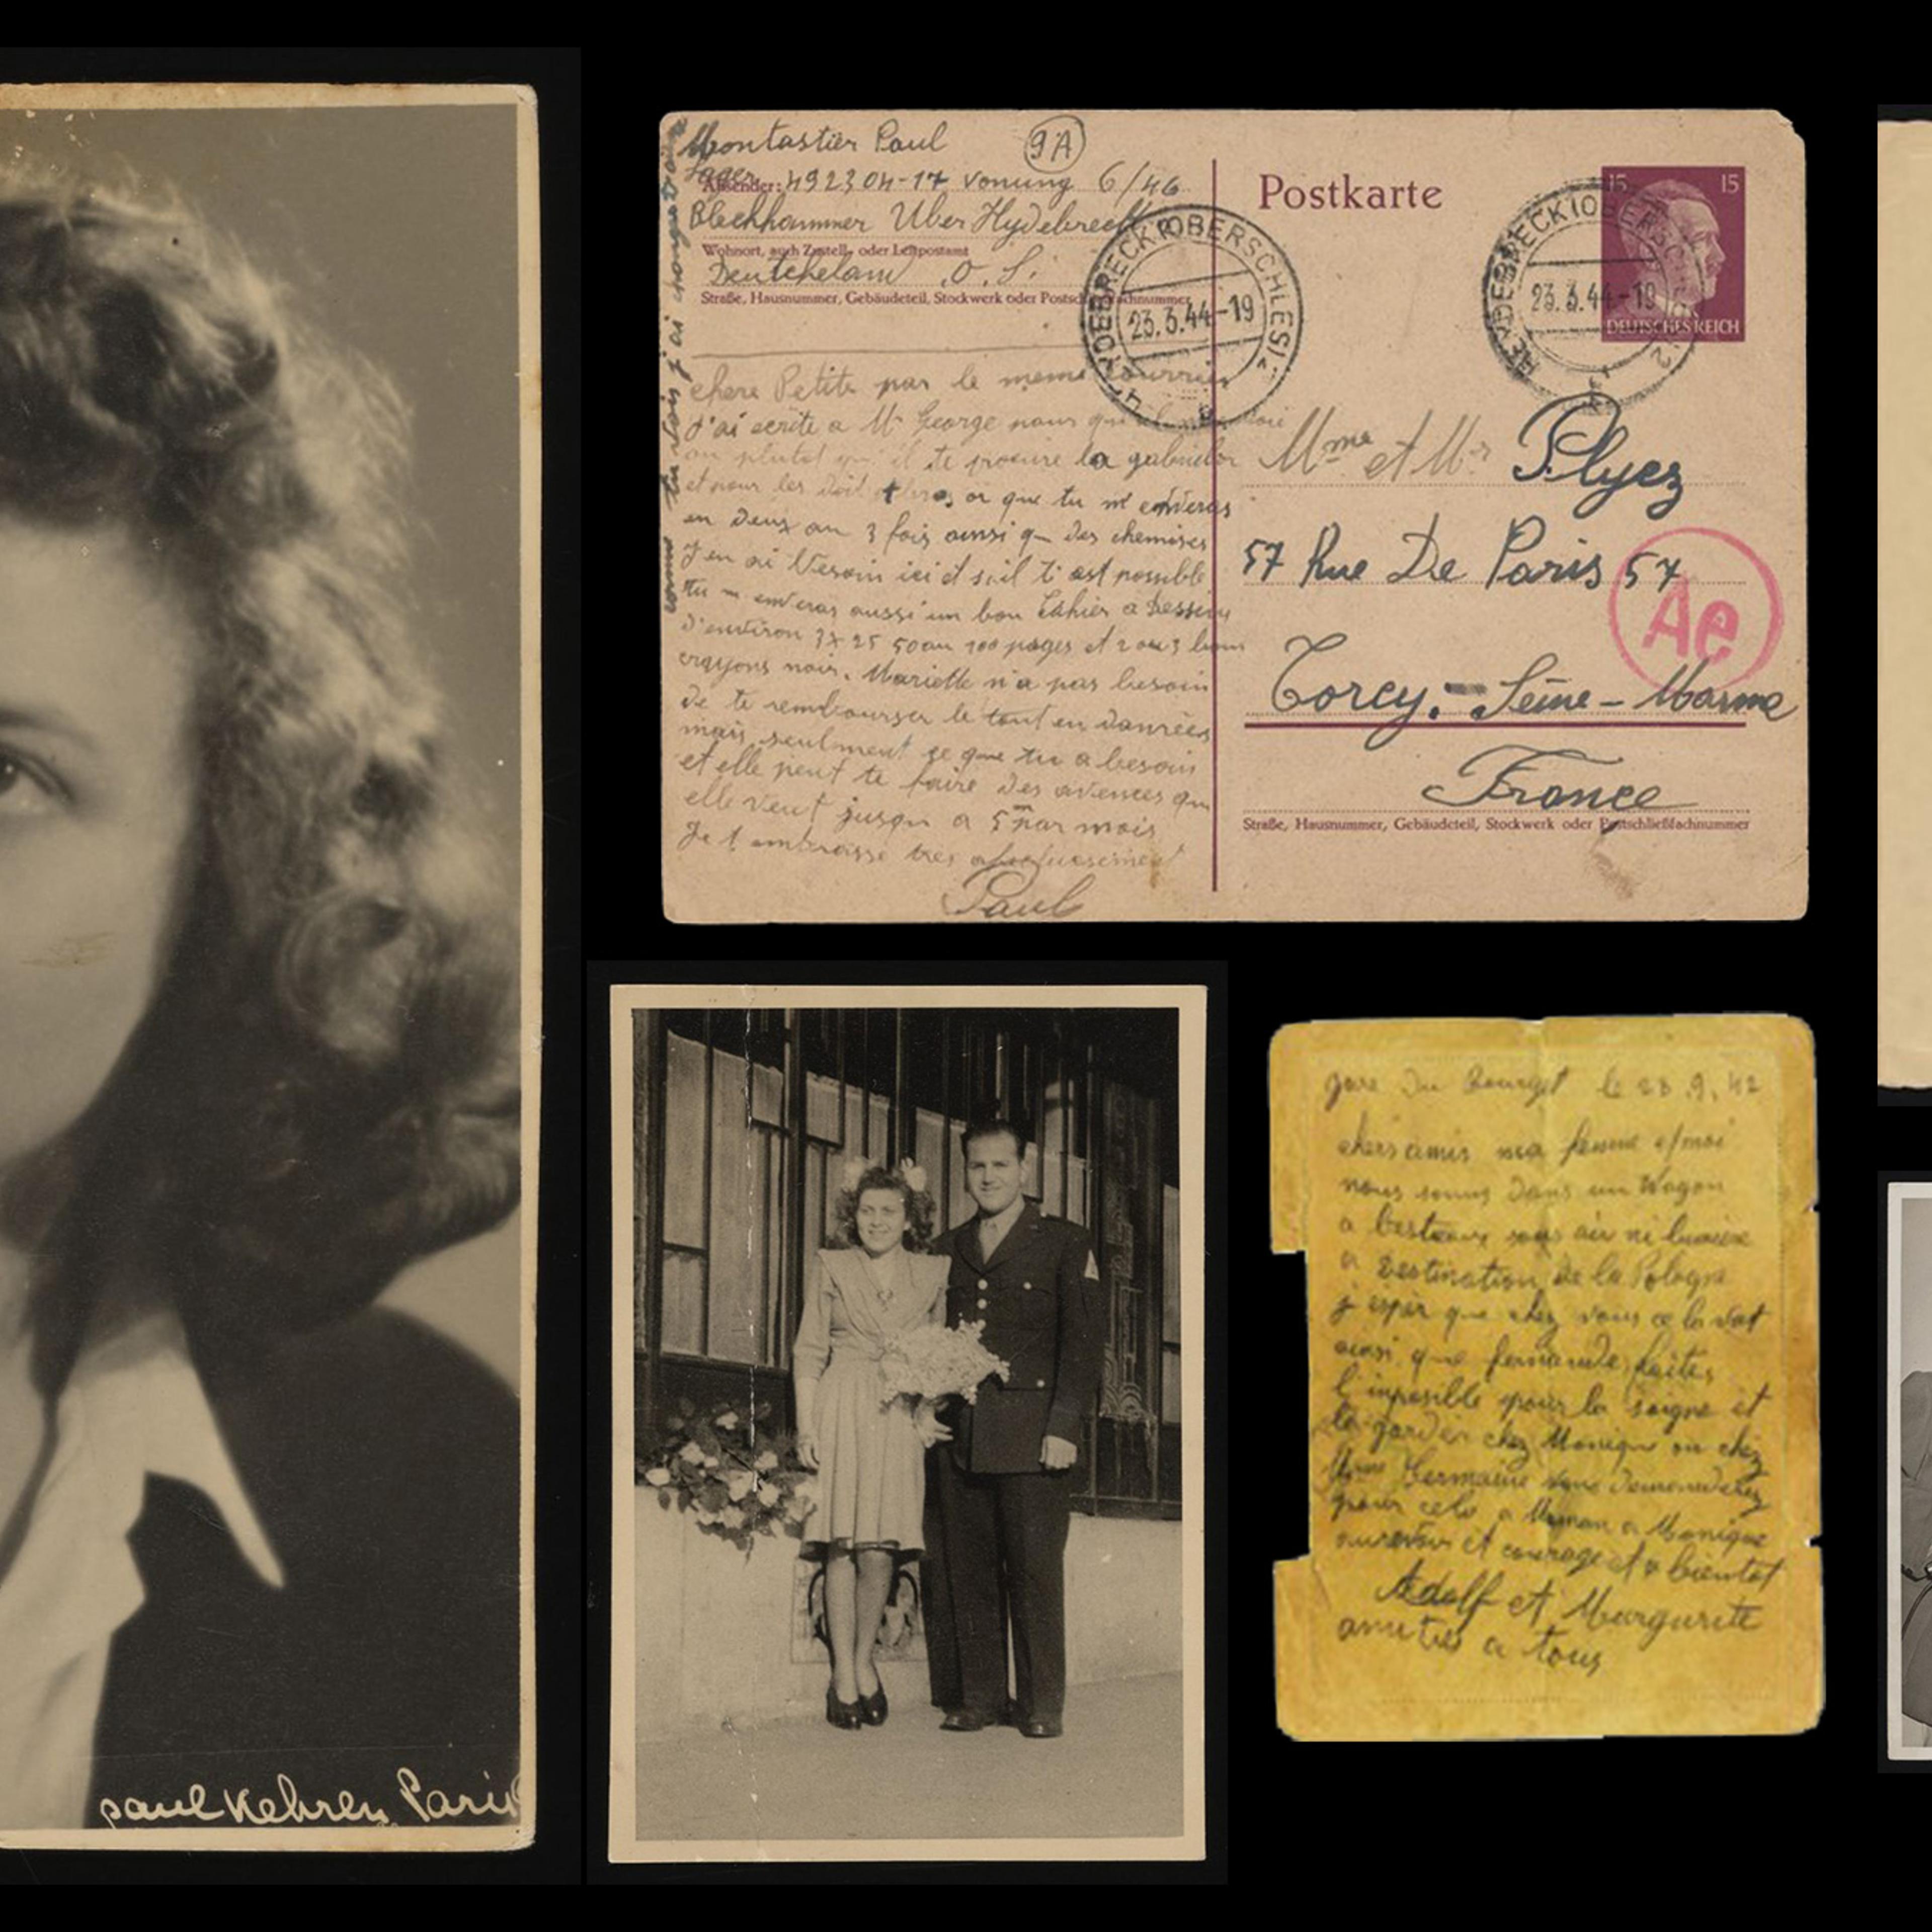 paul Kehren Paris
Montastier Paul 9A
Lager
Absender: 492304-17 vonung 6/46
Blechhammer Uber Hydebreck
Wohnort, auch Zustell- oder Leitpostamt
Deutcheland O. S.
Straße, Hausnummer, Gebäudeteil, Stockwerk oder Postschließfachnummer
chere Petite par le meme courrier
j'ai ecrite a Mr George pour qu'il
ou plutot qu'il te procure la
et pour les or que tu m'enveras
en deux ou 3 fois ainsi que des chemises
j'en ai besoin ici et s'il t'est possible
tu m'enveras aussi un bon cahier a dessin
d'environ 3x 25 50 ou 100 pages et 2 ou 3 bons
crayons noir. Mariette n'a pas besoin
de te rembourser le tout en danrées
mais seulment ce que tu a besoin
et elle peut te faire des avences que
elle veut jusqu a 5 par mois
Je t embrasse tres afectueusement
Paul
comme tu vois j'ai changé
HEYDEBRECK (OBERSCHLES)
23.3.44-19
Postkarte
15 15
DEUTSCHES REICH
HEYDEBRECK (OBERSCHLES)
23.3.44-19
Mme et Mr Plyez
57 Rue De Paris 57
Ae
Torcy. - Seine - Marne
France
Straße, Hausnummer, Gebäudeteil, Stockwerk oder Postschließfachnummer
gare Du Bourget le 28.9.42
chers amis ma femme et moi
nous somms dans un Wagon
a bestiaux sans air ni lumiere
a Destination De la Pologne
j'espér que chez vous ce la vat
ainsi que fernande faites
l'inposible pour la soigné et
la garder chez Monique ou chez
Mme Germaine vous demanderez
pour cela a Maman a Monique
aurevoir et courage et a bientot
Adolf et Margurite
amitiés a tous